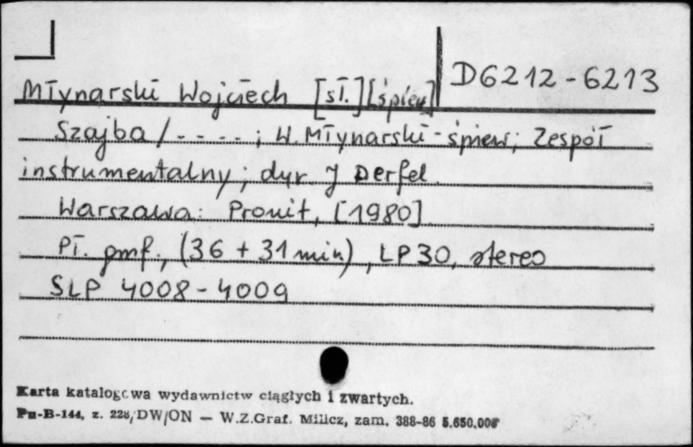 D6212-6213
Młynarski Wojciech [sł.] [śpiew]
Szajba / - - - - ; W. Młynarski - śpiew; Zespół
instrumentalny; dyr. J Derfel.
Warszawa: Pronit, [1980]
Pł. gmf., (36 + 31 min), LP 30, stereo
SLP 4008-4009
Karta katalogowa wydawnictw ciągłych i zwartych.
Pu-B-144, z. 228/DW/ON — W.Z.Graf. Milicz, zam. 388-86 5.650.000